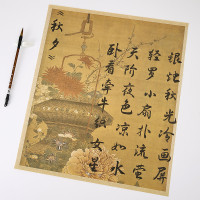 银烛秋光冷画屏
轻罗小扇扑流萤
天阶夜色凉如水
卧看牵牛织女星
《秋夕》